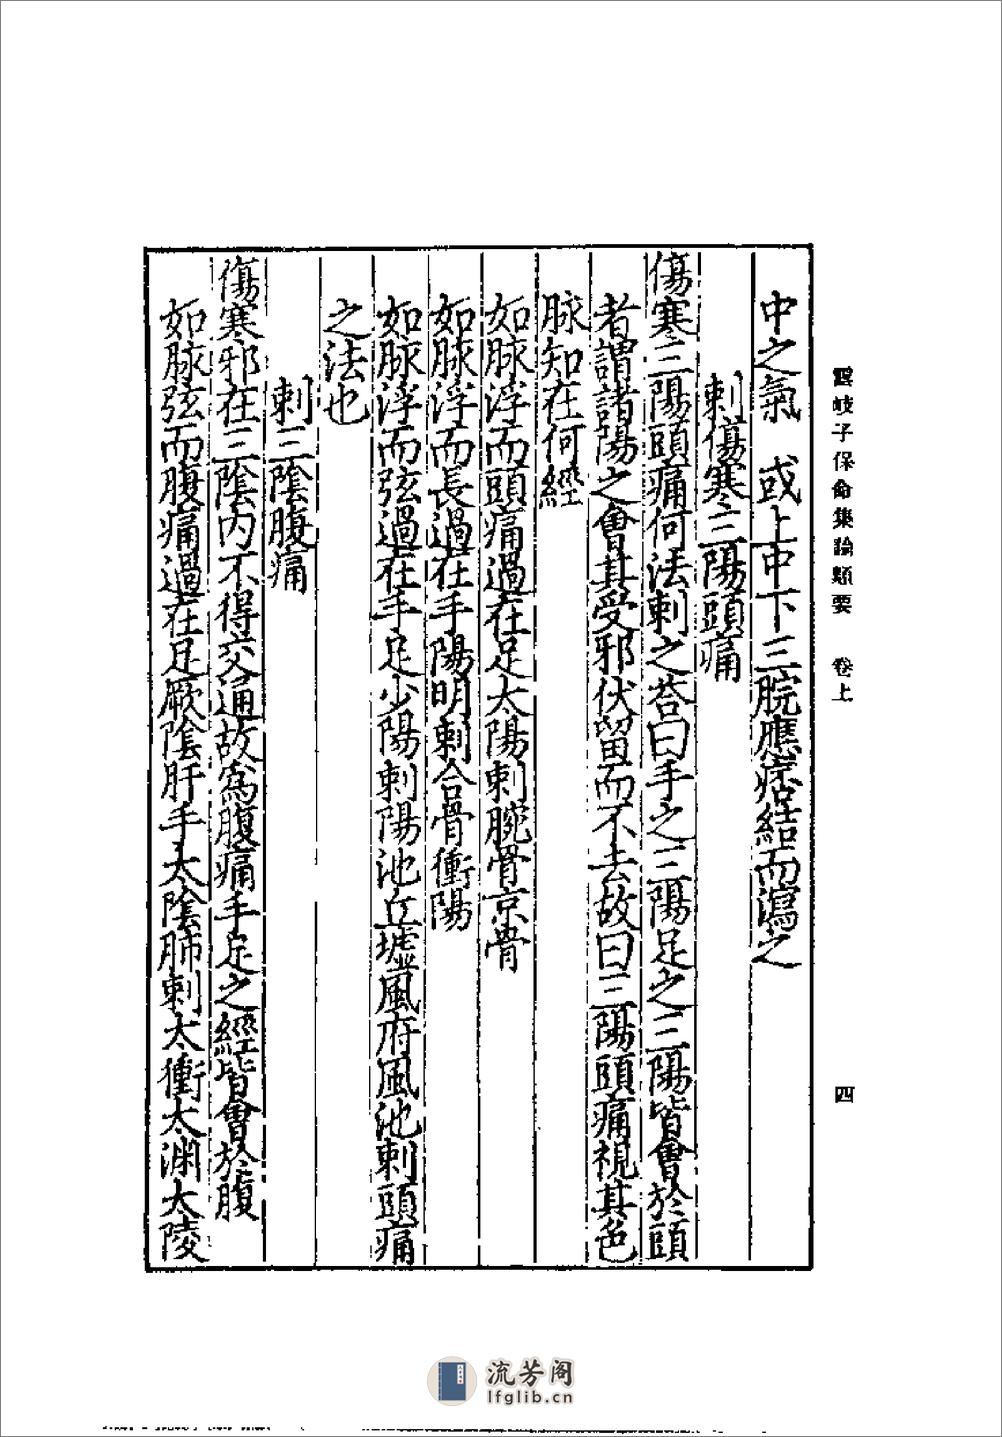 雲岐子保命集論類要　卷上
四
中之氣　或上中下三脘應痞結而瀉之
刺傷寒三陽頭痛
傷寒三陽頭痛何法刺之荅曰手之三陽足之三陽皆會於頭
者謂諸陽之會其受邪伏留而不去故曰三陽頭痛視其色
脉知在何經
如脉浮而頭痛過在足太陽刺腕骨京骨
如脉浮而長過在手陽明刺合骨衝陽
如脉浮而弦過在手足少陽刺陽池丘墟風府風池刺頭痛
之法也
刺三陰腹痛
傷寒邪在三陰內不得交通故爲腹痛手足之經皆會於腹
如脉弦而腹痛過在足厥陰肝手太陰肺刺太衝太渊太陵
流芳阁
lfglib.cn